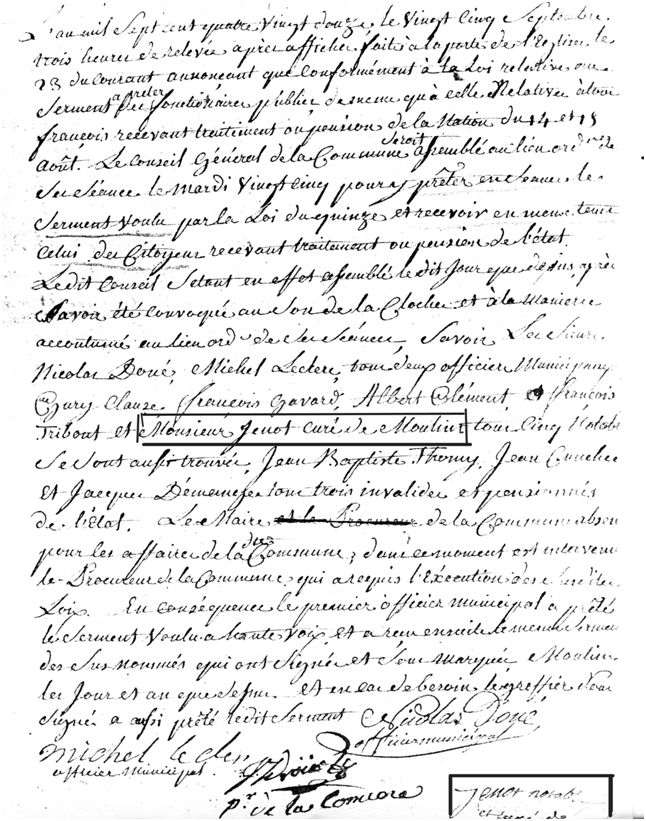 L'an mil Sept cent quatre Vingt douze, le Vingt Cinq Septembre
trois heures de relevée après affiches fait à la porte de l'Eglise le
23 du Courant annonçant que Conformément à la Loi relative au
Serment à prêter des fonctionaires publics de meme qu'à celle Relative à tous
françois recevant traitement ou pension de la Nation du 14 et 15
août. Le Conseil Général de la Commune seroit assemblé au lieu ord.re de
Ses Séances le mardi Vingt Cinq pour y prêter en Séance le
Serment Voulu par la Loi du quinze et recevoir en meme tems
Celui des Citoyens recevant traitement ou pension de l'état.
Ledit Conseil S'etant en effet assemblé le dit Jour que dessus après
avoir été Convoqué au Son de la Cloche et à la Maniere
accoutumé au lieu ord.re de Ses Séances, Savoir Les Sieurs
Nicolas Doué, Michel Leclerc, tous deux officiers Municipaux
Clauze, françois Gavard, Albert Clément et françois
Tribout et Monsieur Jenot Curé de Moulins tous Cinq Notables
Se Sont aussi trouvés, Jean Baptiste Thomy, Jean
Et Jacques tous trois invalides et pensionnés
de l'état. Le Maire et le Procureur de la Commune absen
pour les affaires de la dite Commune; dans ce moment est intervenu
le Procureur de la Commune qui a requis l'Exécution des Susdites
Loix. En conséquence le premier officier municipal a prêté
le Serment Voulu a haute Voix et a reçu ensuite le meme Serment
des Sus nommés qui ont Signés et Sous Marqués à Moulins
les Jour et an que dessus. et en cas de besoin le greffier Sous
Signé a aussi prêté ledit Serment Nicolas Doué
officier municipal
michel le cler
officier Municipal.
p.r de la Comeone
Jenot notable
et curé de